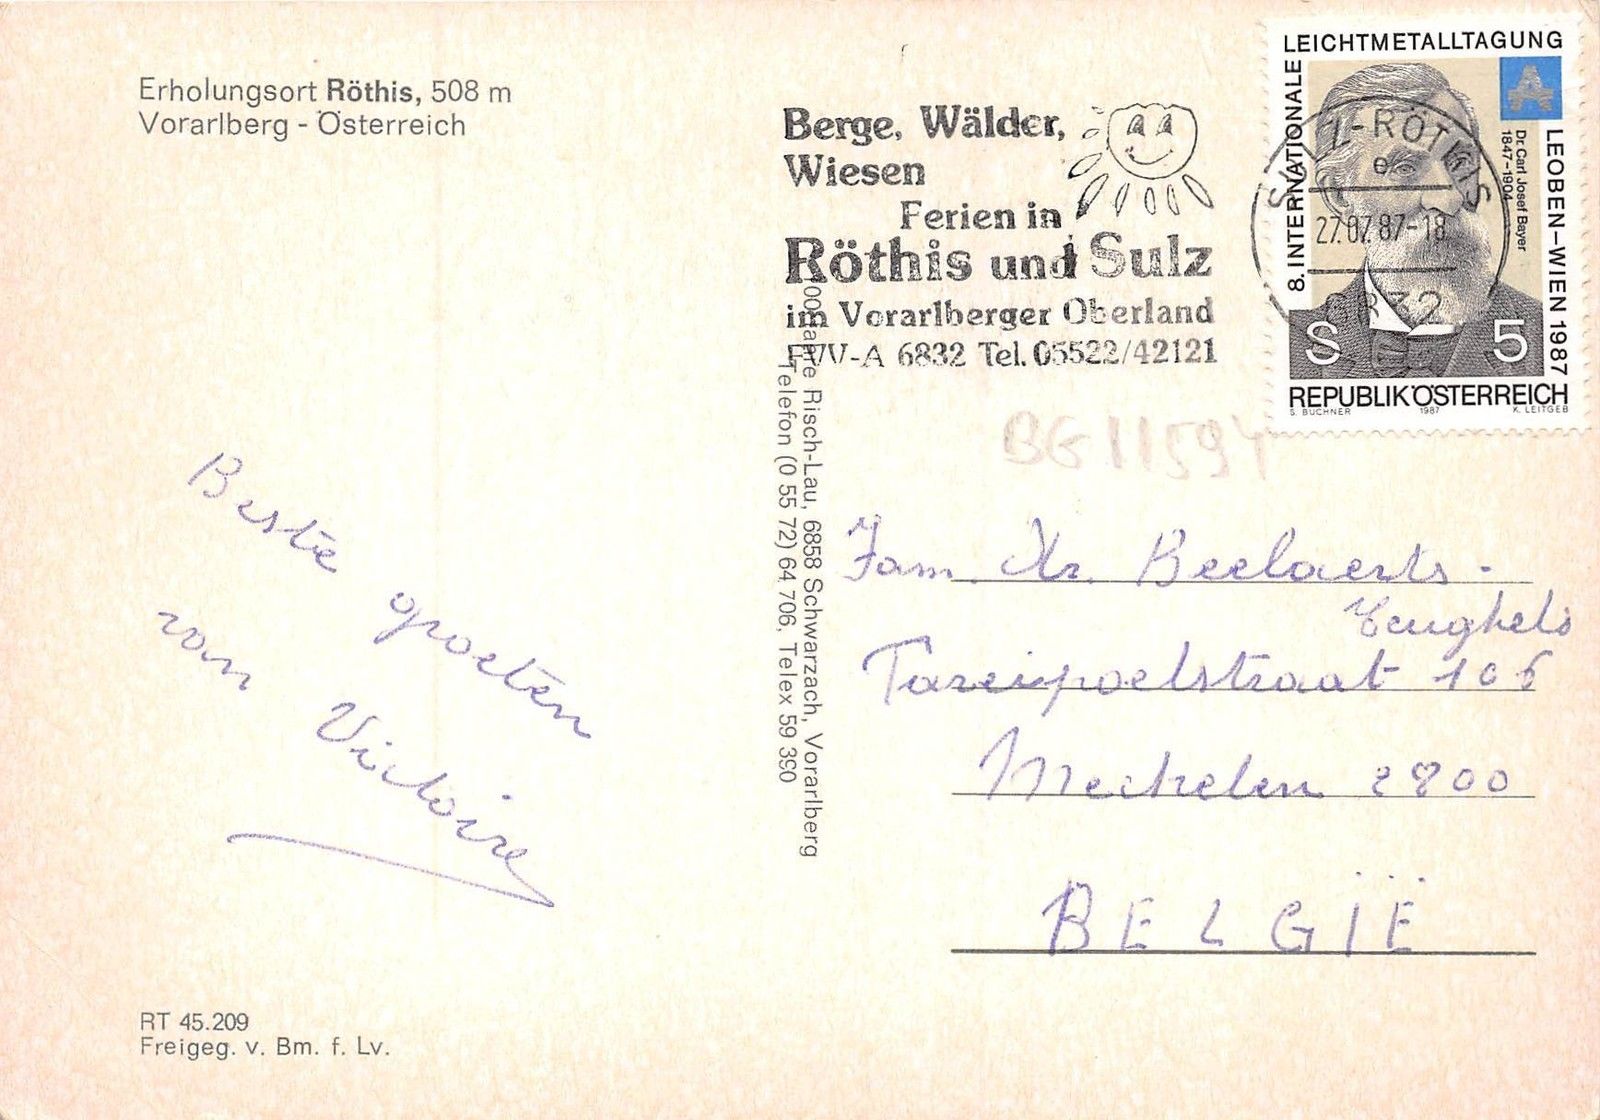 Erholungsort Röthis, 508 m
Vorarlberg - Österreich
Berge, Wälder,
Wiesen
Ferien in
Röthis und Sulz
im Vorarlberger Oberland
FVV-A 6832 Tel. 05522/42121
8. INTERNATIONALE
LEICHTMETALLTAGUNG
LEOBEN–WIEN 1987
Dr. Carl Josef Bayer
1847-1904
SULZ-RÖTHIS
e
27.07.87-18
6832
S 5
REPUBLIK ÖSTERREICH
S. BUCHNER 1987 K. LEITGEB
BG 11594
Risch-Lau, 6858 Schwarzach, Vorarlberg
Telefon (0 55 72) 64 706, Telex 59 390
Beste groeten
van Victoire
Fam. Beelaerts -
Teughels
Mechelen 2800
BELGIË
RT 45.209
Freigeg. v. Bm. f. Lv.